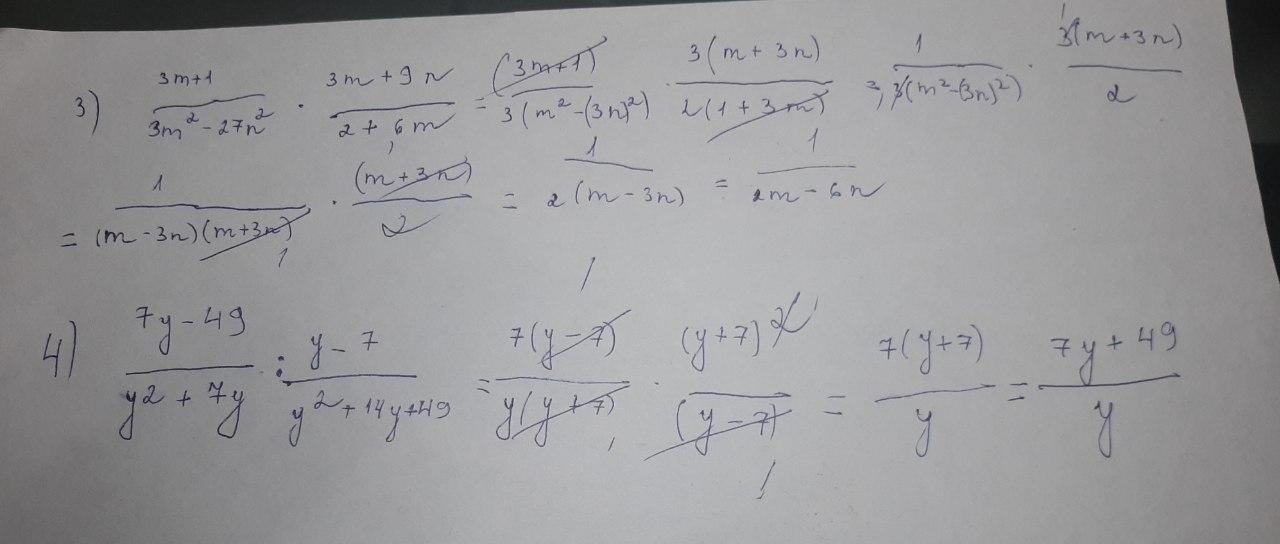 3) (3m+1)/(3m² - 27n²) · (3m + 9n)/(2 + 6m) = (3m+1)/(3(m² - (3n)²)) · 3(m + 3n)/(2(1 + 3m)) = 1/(3(m² - (3n)²)) · 3(m + 3n)/2
= 1/((m - 3n)(m + 3n)) · (m + 3n)/2 = 1/(2(m - 3n)) = 1/(2m - 6n)
4) (7y - 49)/(y² + 7y) : (y - 7)/(y² + 14y + 49) = 7(y - 7)/(y(y + 7)) · (y + 7)²/(y - 7) = 7(y + 7)/y = (7y + 49)/y